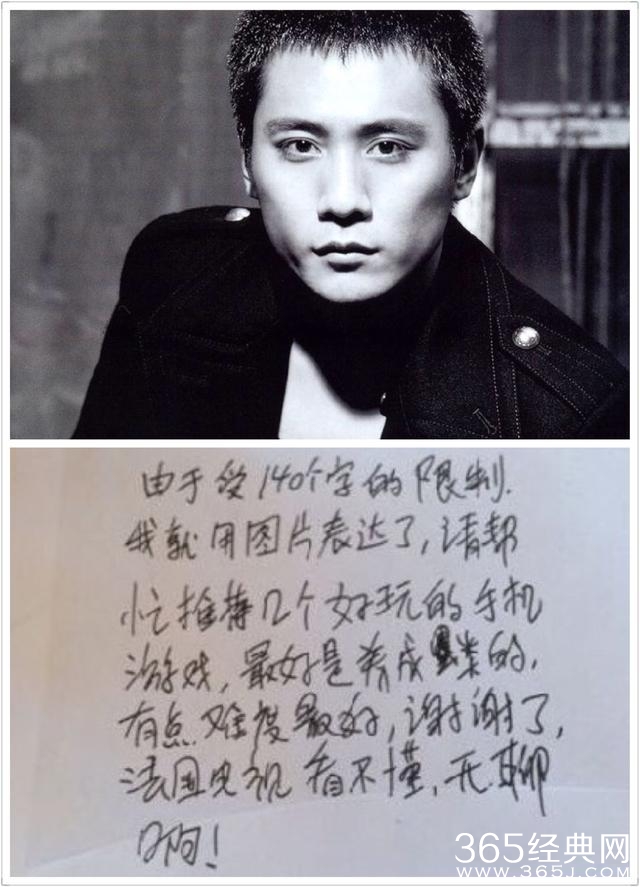 由于受140个字的限制.
我就用图片表达了,请帮
忙推荐几个好玩的手机
游戏,最好是养成类的,
有点难度最好,谢谢了,
法国电视看不懂,无聊
啊!
365经典网
WWW.365J.COM